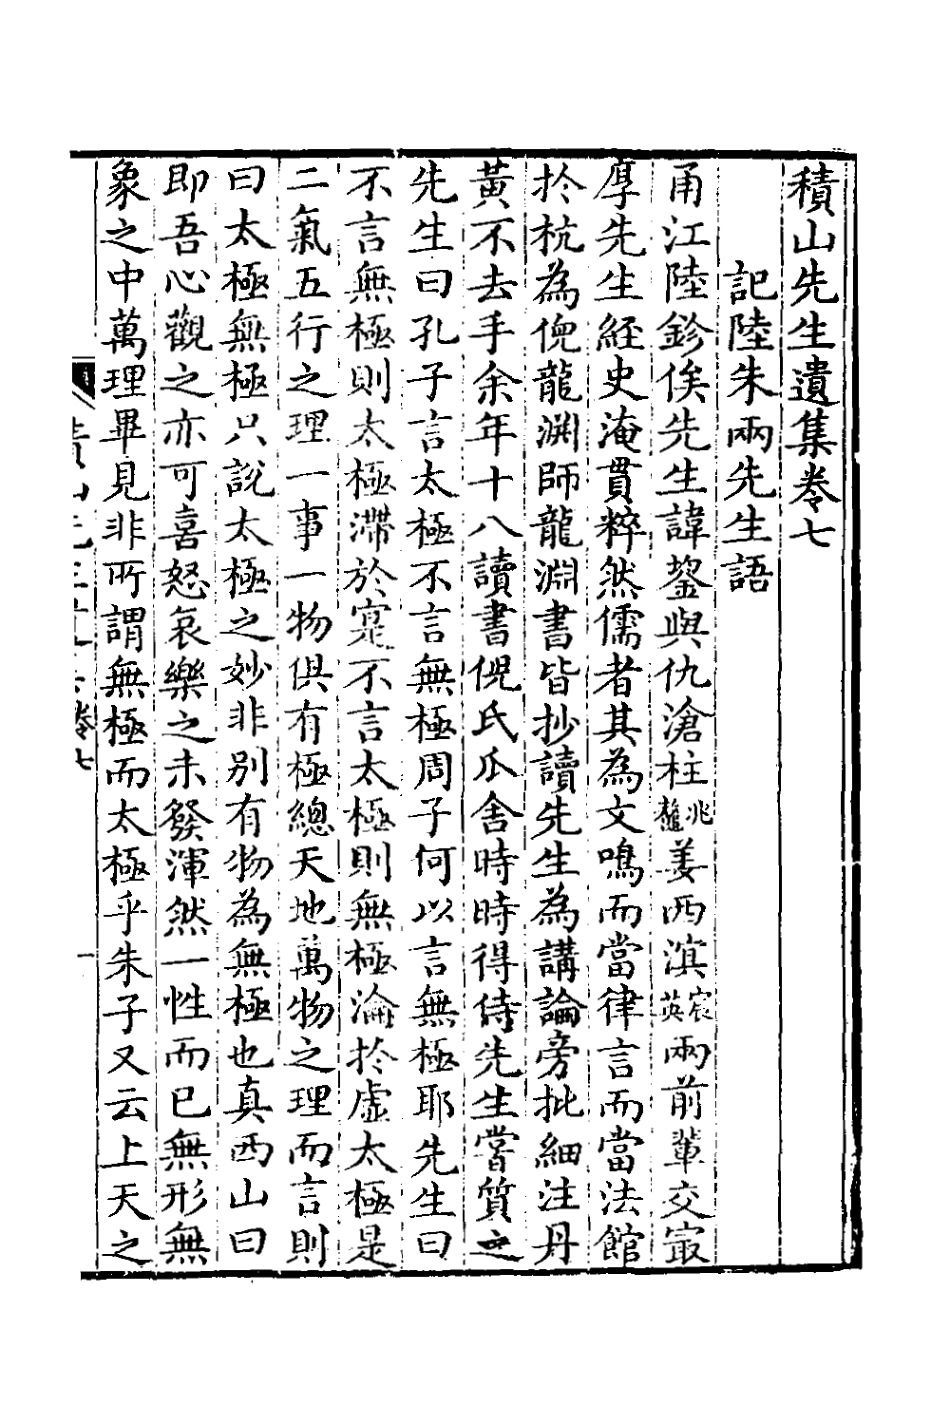 積山先生遺集卷七
記陸朱兩先生語
甬江陸鉁俟先生諱鋆與仇滄柱兆鼇姜西溟宸英兩前輩交㝡
厚先生經史淹貫粹然儒者其為文鳴而當律言而當法館
扵杭為俛龍淵師龍淵書皆抄讀先生為講論旁批細注丹
黃不去手余年十八讀書倪氏瓜舍時時得侍先生嘗質之
先生曰孔子言太極不言無極周子何以言無極耶先生曰
不言無極則太極滯於寔不言太極則無極淪扵虛太極是
二氣五行之理一事一物俱有極總天地萬物之理而言則
曰太極無極只說太極之妙非別有物為無極也真西山曰
即吾心觀之亦可喜怒哀樂之未發渾然一性而已無形無
象之中萬理畢見非所謂無極而太極乎朱子又云上天之
卷七
一